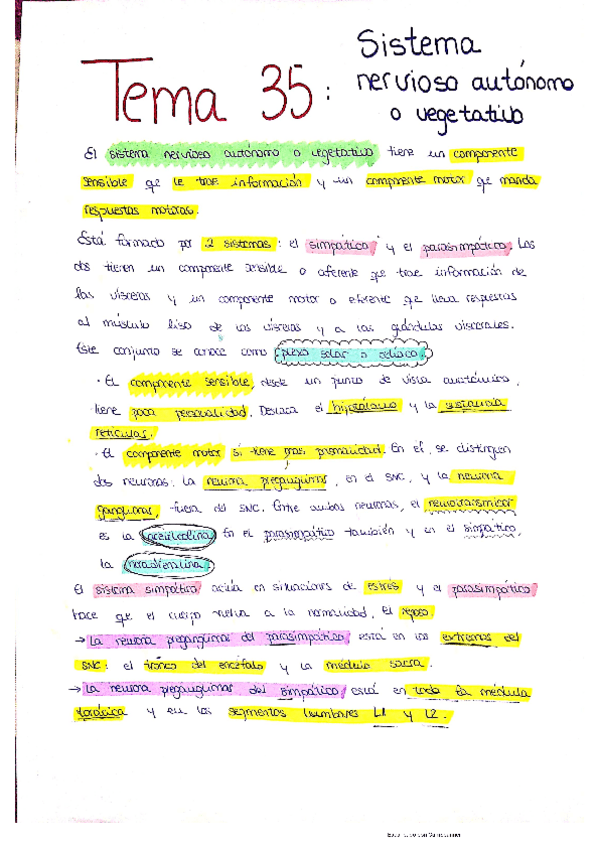 Sistema
Tema 35: nervioso autónomo
o vegetativo
El sistema nervioso autónomo o vegetativo tiene un componente
sensible que le trae información y un componente motor que manda
respuestas motoras.
Está formado por 2 sistemas: el simpático y el parasimpático. Los
dos tienen un componente sensible o aferente que trae información de
las vísceras y un componente motor o eferente que lleva respuestas
al músculo liso de las vísceras y a las glándulas viscerales.
Este conjunto se conoce como plexo solar o celíaco.
· El componente sensible, desde un punto de vista anatómico,
tiene poca personalidad. Destaca el hipotálamo y la sustancia
reticular.
· El componente motor si tiene más personalidad. En él, se distinguen
dos neuronas: la neurona preganglionar, en el SNC, y la neurona
ganglionar, fuera del SNC. Entre ambas neuronas, el neurotransmisor
es la acetilcolina. En el parasimpático también y en el simpático,
la noradrenalina.
El sistema simpático actúa en situaciones de estrés y el parasimpático
hace que el cuerpo vuelva a la normalidad, el reposo.
→ La neurona preganglionar del parasimpático está en los extremos del
SNC: el tronco del encéfalo y la médula sacra.
→ La neurona preganglionar del simpático está en toda la médula
torácica y en los segmentos lumbares L1 y L2.